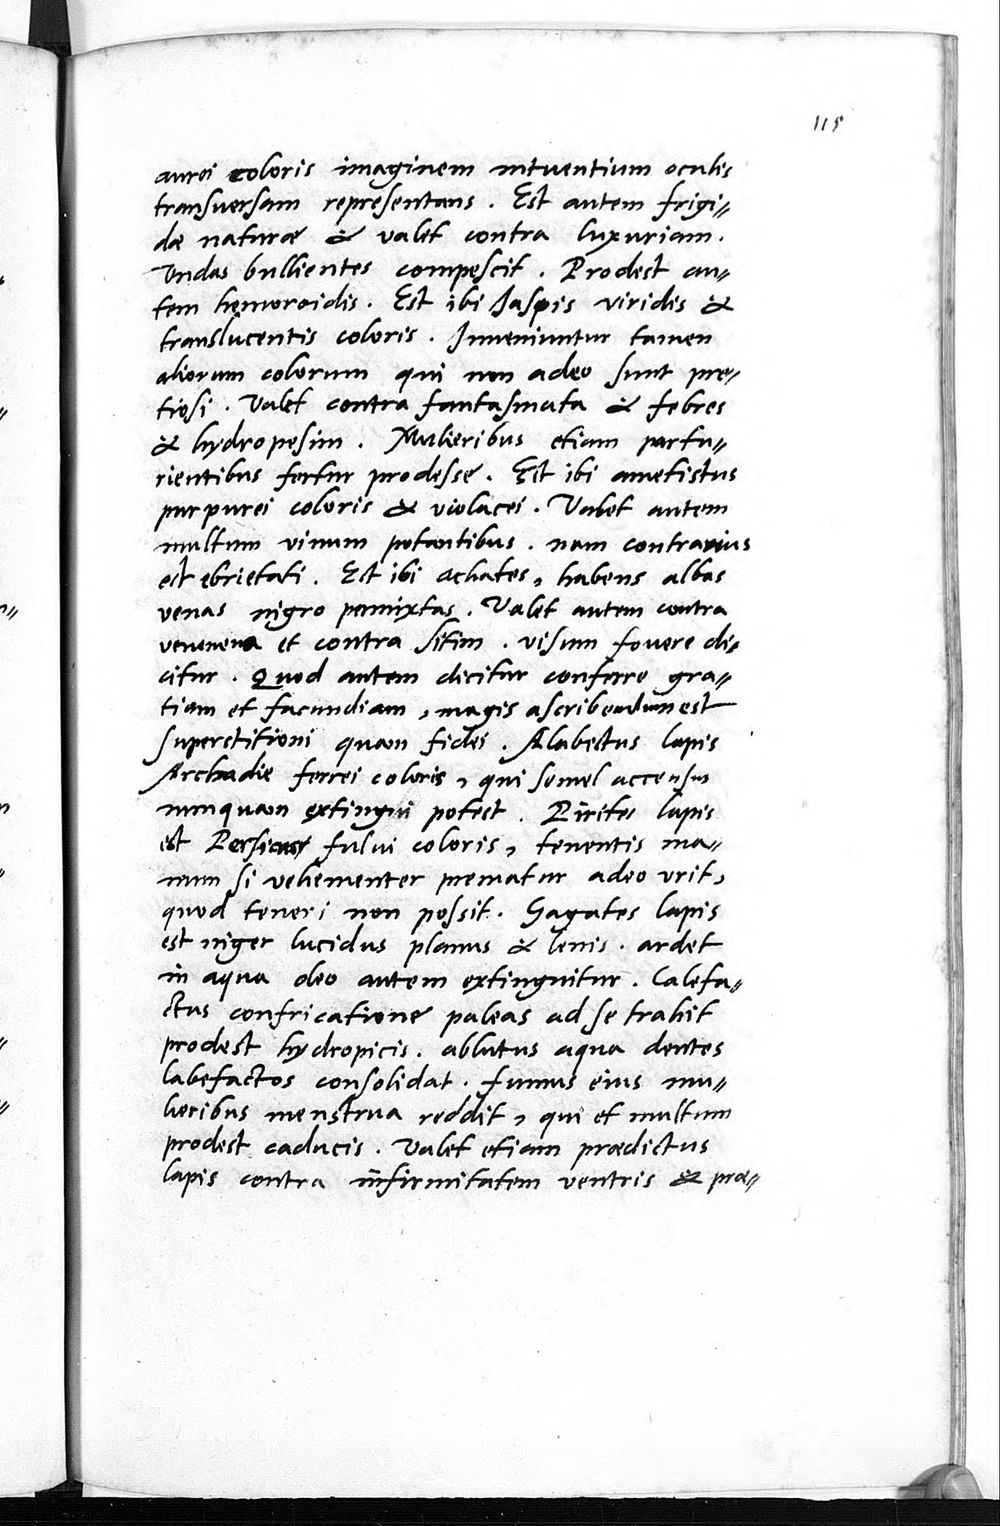 115
aurei coloris imaginem intuentium oculis
transversam representans . Est autem frigi//
dæ naturæ & valet contra luxuriam .
Undas bullientes compescit . Prodest au//
tem hemoroidis . Est ibi Jaspis viridis &
translucentis coloris . Inveniuntur tamen
aliorum colorum qui non adeo sunt pre//
tiosi . Valet contra fantasmata & febres
& hydropesim . Mulieribus etiam partu//
rientibus fertur prodesse . Est ibi ametistus
purpurei coloris & violacei . Valet autem
multum vinum potantibus . nam contrarius
est ebrietati . Est ibi achates, habens albas
venas nigro permixtas . Valet autem contra
venenena et contra sitim . visum fovere di//
citur . Quod autem dicitur conferre gra//
tiam et facundiam , magis ascribendum est
superstitioni quam fidei . Alabestus lapis
Archadie ferrei coloris , qui semel accensus
nunquam extingui potest . Pirites lapis
est Persicus fulvi coloris , tenentis ma//
num si vehementer prematur adeo urit,
quod teneri non possit . Gagates lapis
est niger lucidus planus & lenis . ardet
in aqua oleo autem extinguitur . Calefa//
ctus confricatione paleas ad se trahit
prodest hydropicis . ablutus aqua dentes
labefactos consolidat . fumus eius mu//
lieribus menstrua reddit , qui et multum
prodest caducis . Valet etiam prædictus
lapis contra infirmitatem ventris & præ//